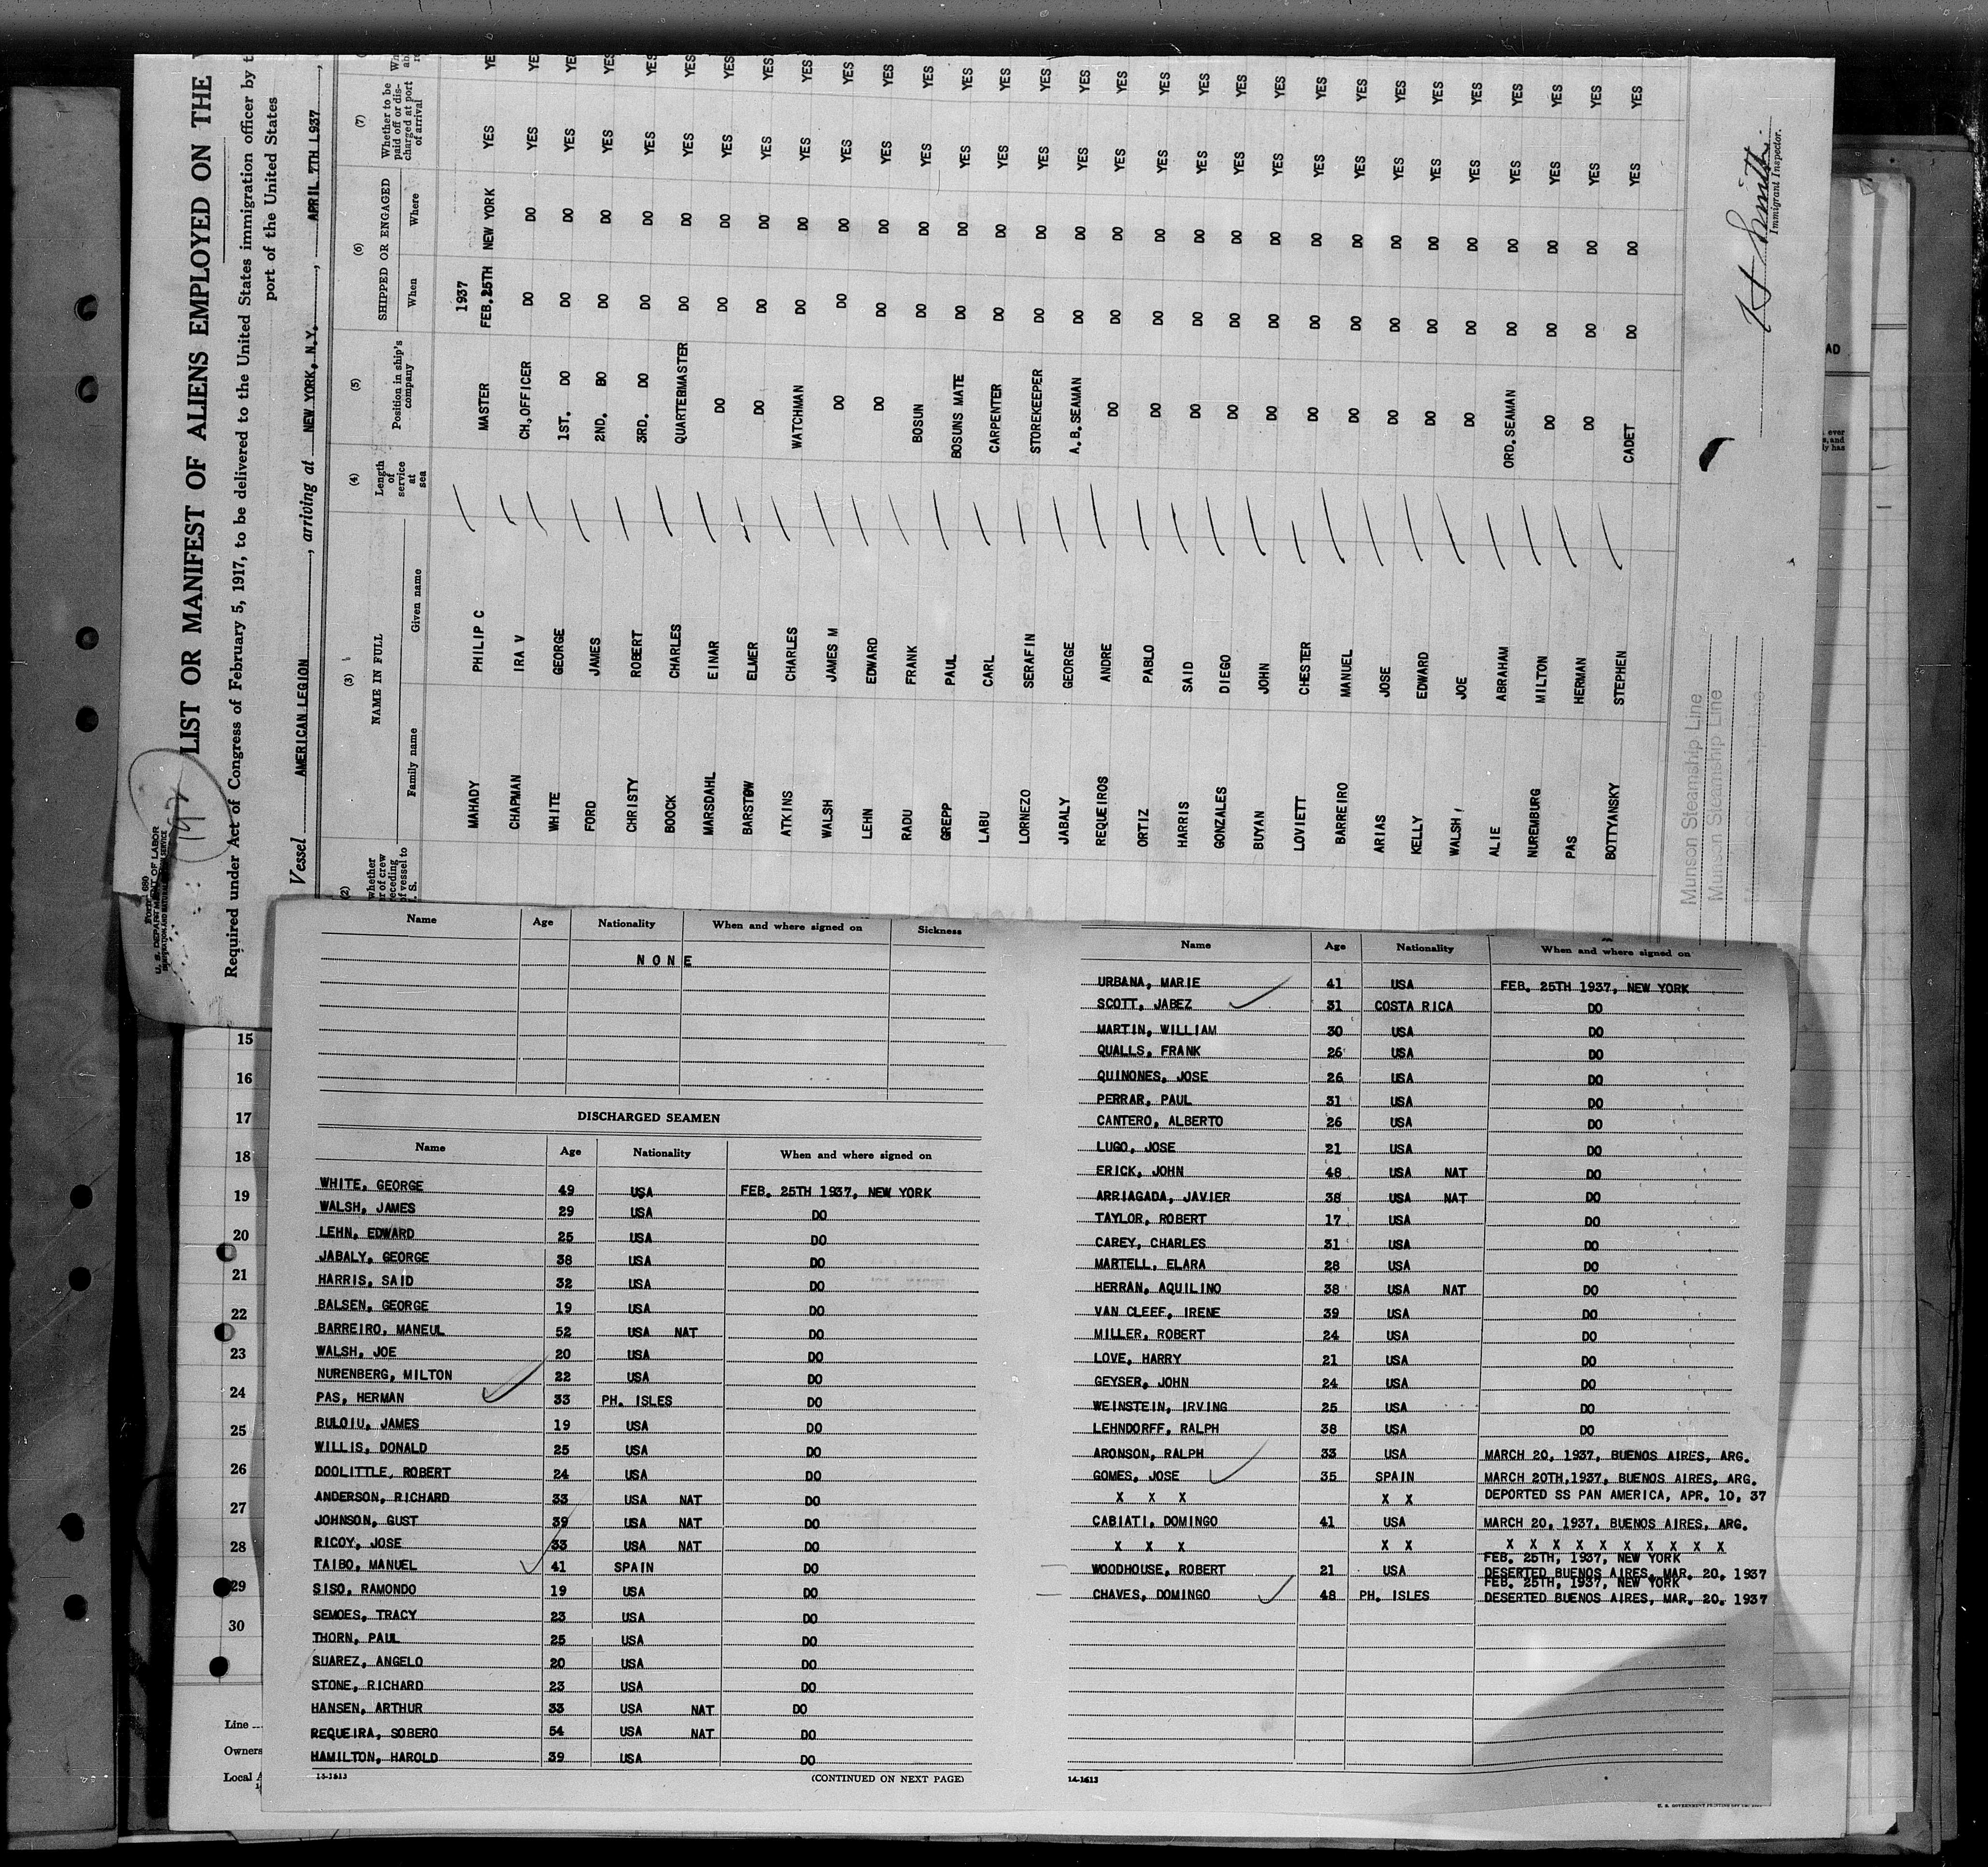 Form 680
U. S. DEPARTMENT OF LABOR
IMMIGRATION AND NATURALIZATION SERVICE
LIST OR MANIFEST OF ALIENS EMPLOYED ON THE
Required under Act of Congress of February 5, 1917, to be delivered to the United States immigration officer by t
port of the United States
Vessel AMERICAN LEGION, arriving at NEW YORK, N.Y., APRIL 7TH L937,
(2) (3) (4) (5) (6) (7)
whether NAME IN FULL Length of service at sea Position in ship's company SHIPPED OR ENGAGED Whether to be paid off or dis-charged at port of arrival
Family name Given name When Where
1937
MAHADY PHILIP C MASTER FEB.25TH NEW YORK YES YE
CHAPMAN IRA V CH,OFFICER DO DO YES YES
WHITE GEORGE 1ST. DO DO DO YES YES
FORD JAMES 2ND. BO DO DO YES YES
CHRISTY ROBERT 3RD. DO DO DO YES YES
BOOCK CHARLES QUARTEBMASTER DO DO YES YES
MARSDAHL EINAR DO DO DO YES YES
BARSTOW ELMER DO DO DO YES YES
ATKINS CHARLES WATCHMAN DO DO YES YES
WALSH JAMES M DO DO DO YES YES
LEHN EDWARD DO DO DO YES YES
RADU FRANK BOSUN DO DO YES YES
GREPP PAUL BOSUNS MATE DO DO YES YES
LABU CARL CARPENTER DO DO YES YES
LORNEZO SERAFIN STOREKEEPER DO DO YES YES
JABALY GEORGE A.B.SEAMAN DO DO YES YES
REQUEIROS ANDRE DO DO DO YES YES
ORTIZ PABLO DO DO DO YES YES
HARRIS SAID DO DO DO YES YES
GONZALES DIEGO DO DO DO YES YES
BUYAN JOHN DO DO DO YES YES
LOVIETT CHESTER DO DO DO YES YES
BARREIRO MANUEL DO DO DO YES YES
ARIAS JOSE DO DO DO YES YES
KELLY EDWARD DO DO DO YES YES
WALSH JOE DO DO DO YES YES
ALIE ABRAHAM ORD.SEAMAN DO DO YES YES
NUREMBURG MILTON DO DO DO YES YES
PAS HERMAN DO DO DO YES YES
BOTTYANSKY STEPHEN CADET DO DO YES YES
Munson Steamship Line
Munson Steamship Line
Smith
Immigrant Inspector.
Name Age Nationality When and where signed on Sickness
NONE
DISCHARGED SEAMEN
Name Age Nationality When and where signed on
WHITE, GEORGE 49 USA FEB. 25TH 1937, NEW YORK
WALSH, JAMES 29 USA DO
LEHN, EDWARD 25 USA DO
JABALY, GEORGE 38 USA DO
HARRIS, SAID 32 USA DO
BALSEN, GEORGE 19 USA DO
BARREIRO, MANEUL 52 USA NAT DO
WALSH, JOE 20 USA DO
NURENBERG, MILTON 22 USA DO
PAS, HERMAN 33 PH. ISLES DO
BULOIU, JAMES 19 USA DO
WILLIS, DONALD 25 USA DO
DOOLITTLE, ROBERT 24 USA DO
ANDERSON, RICHARD 33 USA NAT DO
JOHNSON, GUST 39 USA NAT DO
RICOY, JOSE 33 USA NAT DO
TAIBO, MANUEL 41 SPAIN DO
SISO, RAMONDO 19 USA DO
SEMOES, TRACY 23 USA DO
THORN, PAUL 25 USA DO
SUAREZ, ANGELO 20 USA DO
STONE, RICHARD 23 USA DO
HANSEN, ARTHUR 33 USA NAT DO
REQUEIRA, SOBERO 54 USA NAT DO
HAMILTON, HAROLD 39 USA DO
(CONTINUED ON NEXT PAGE)
Name Age Nationality When and where signed on
URBANA, MARIE 41 USA FEB. 25TH 1937, NEW YORK
SCOTT, JABEZ 31 COSTA RICA DO
MARTIN, WILLIAM 30 USA DO
QUALLS, FRANK 26 USA DO
QUINONES, JOSE 26 USA DO
PERRAR, PAUL 31 USA DO
CANTERO, ALBERTO 26 USA DO
LUGO, JOSE 21 USA DO
ERICK, JOHN 48 USA NAT DO
ARRIAGADA, JAVIER 38 USA NAT DO
TAYLOR, ROBERT 17 USA DO
CAREY, CHARLES 31 USA DO
MARTELL, ELARA 28 USA DO
HERRAN, AQUILINO 38 USA NAT DO
VAN CLEEF, IRENE 39 USA DO
MILLER, ROBERT 24 USA DO
LOVE, HARRY 21 USA DO
GEYSER, JOHN 24 USA DO
WEINSTEIN, IRVING 25 USA DO
LEHNDORFF, RALPH 38 USA DO
ARONSON, RALPH 33 USA MARCH 20, 1937, BUENOS AIRES, ARG.
GOMES, JOSE 35 SPAIN MARCH 20TH,1937, BUENOS AIRES, ARG.
X X X X X DEPORTED SS PAN AMERICA, APR. 10, 37
CABIATI, DOMINGO 41 USA MARCH 20, 1937, BUENOS AIRES, ARG.
X X X X X X X X X X X X X X X
FEB. 25TH, 1937, NEW YORK
WOODHOUSE, ROBERT 21 USA DESERTED BUENOS AIRES, MAR. 20, 1937
FEB. 25TH, 1937, NEW YORK
CHAVES, DOMINGO 48 PH. ISLES DESERTED BUENOS AIRES, MAR. 20, 1937
14-1613
15
16
17
18
19
20
21
22
23
24
25
26
27
28
29
30
Line
Owners
Local A
AD
ever